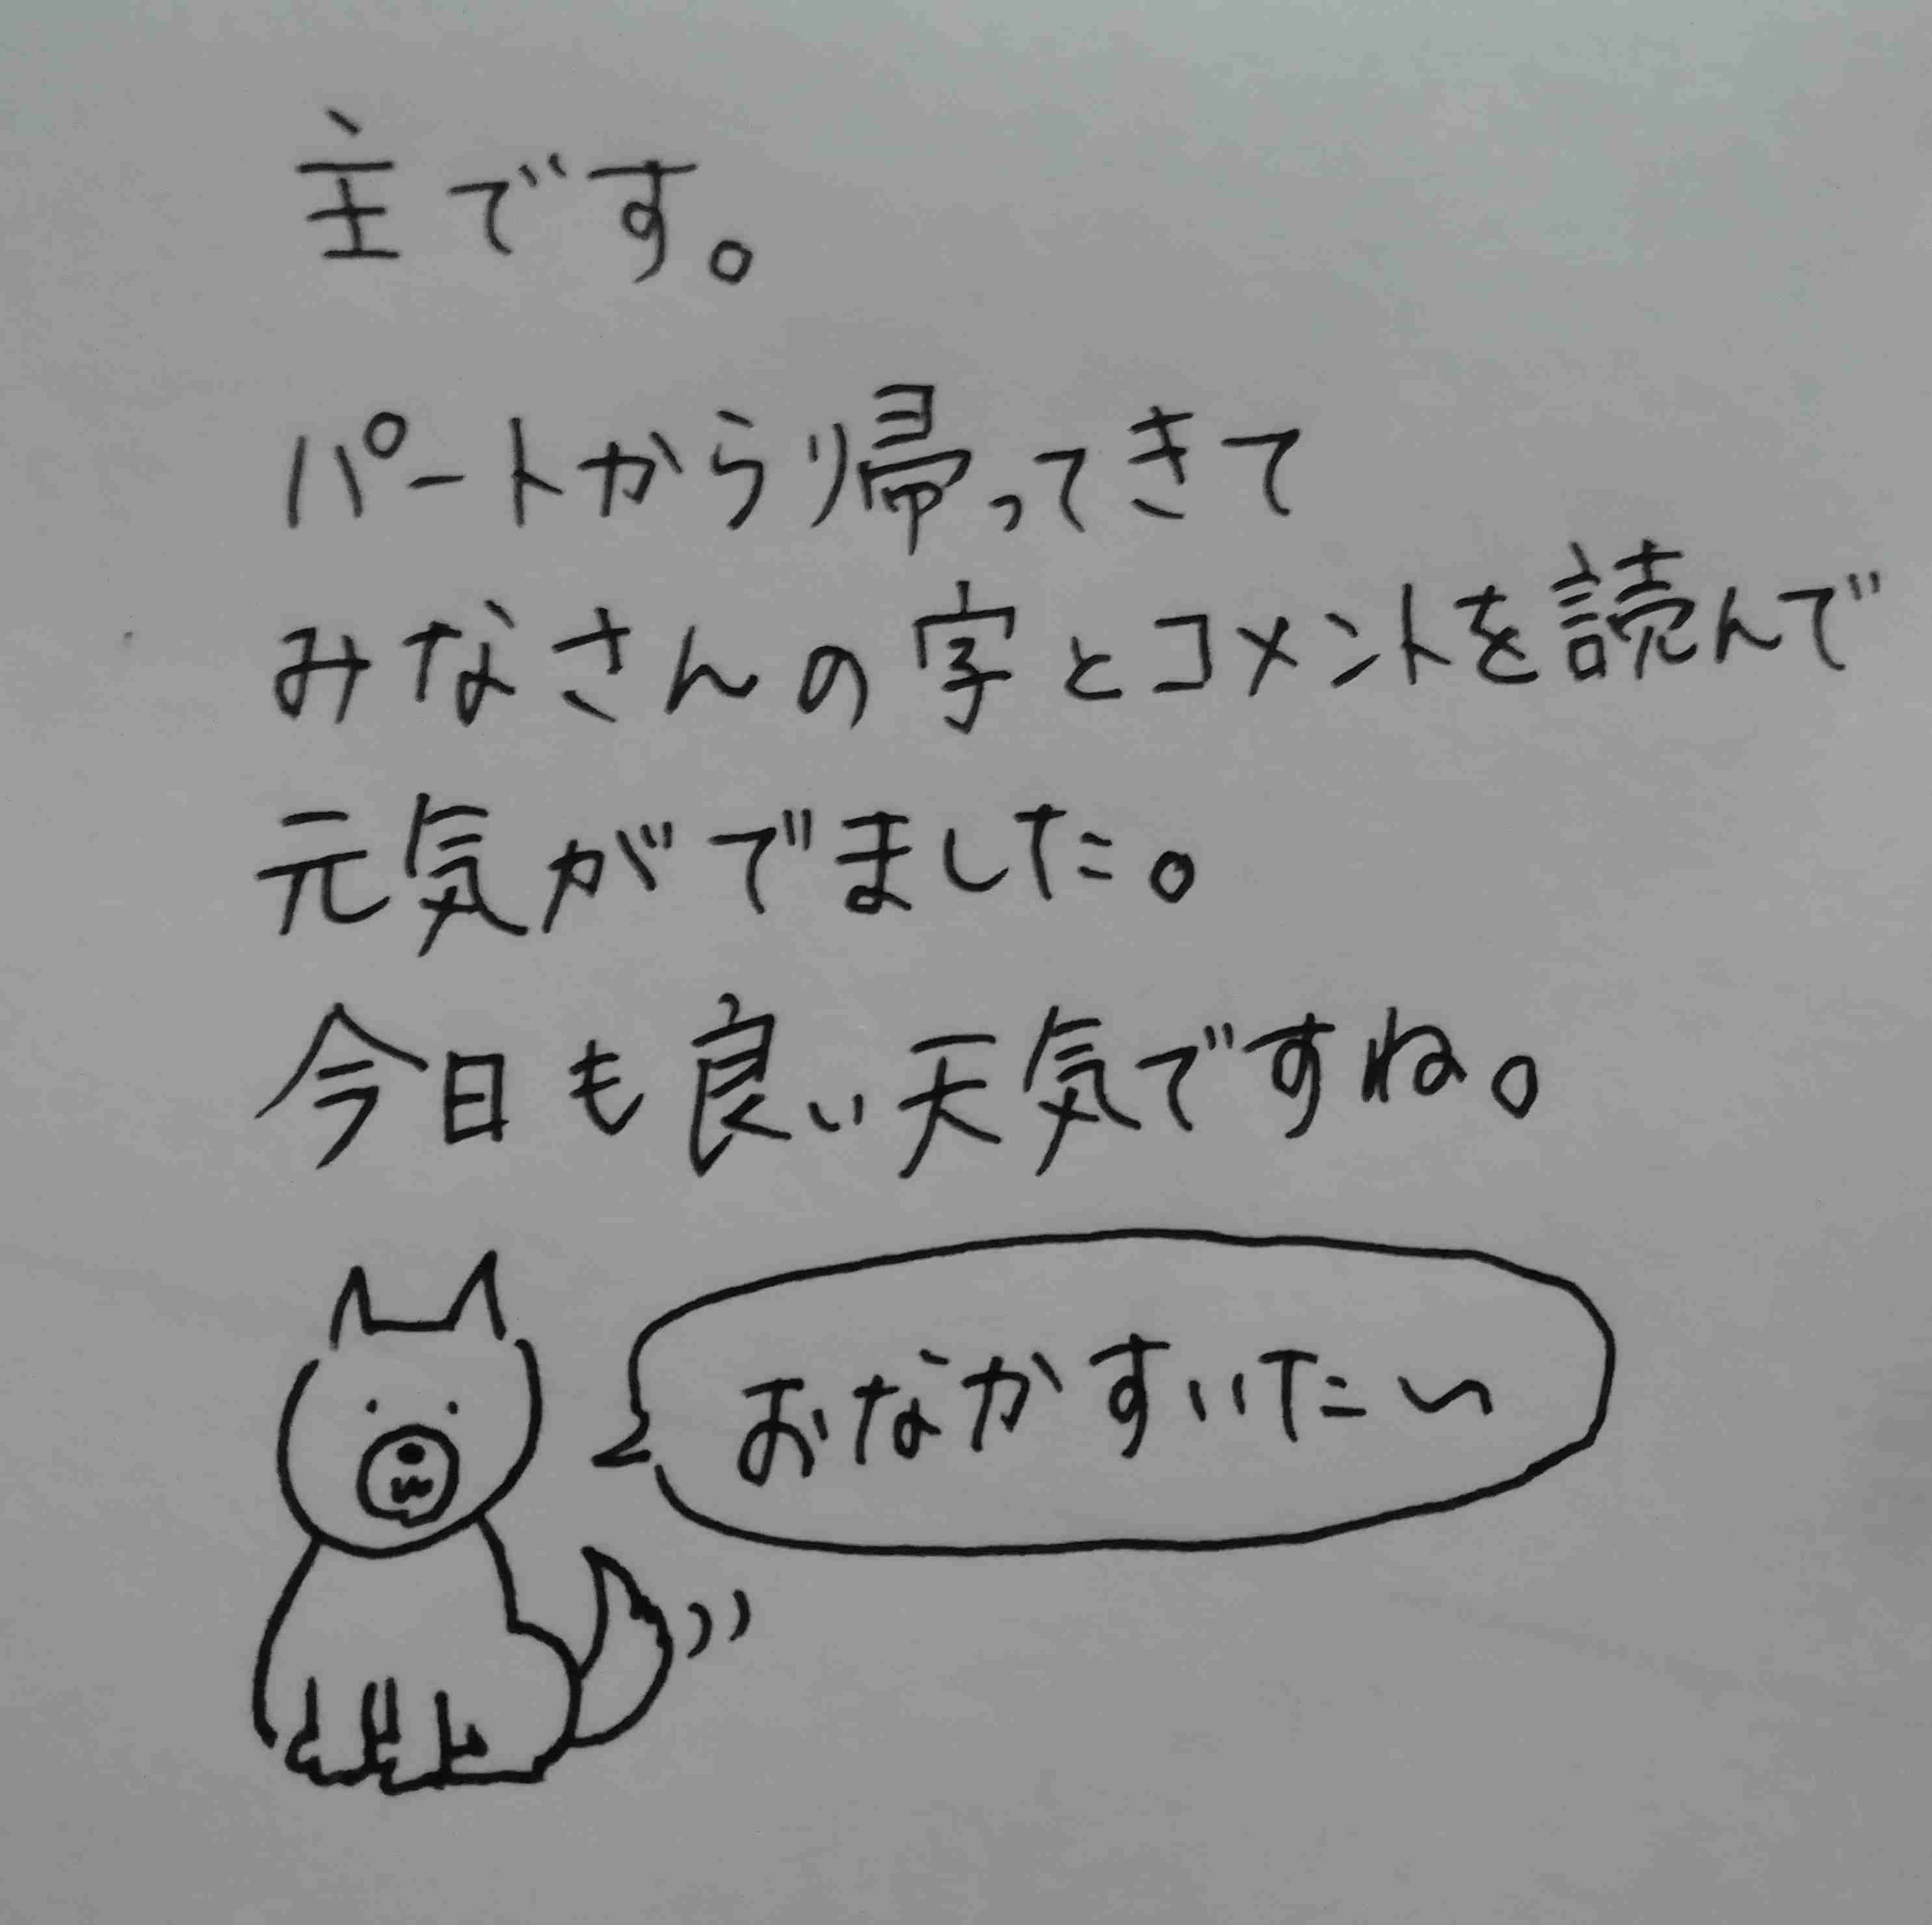 主です。
パートから帰ってきて
みなさんの字とコメントを読んで
元気がでました。
今日も良い天気ですね。
おなかすいた〜